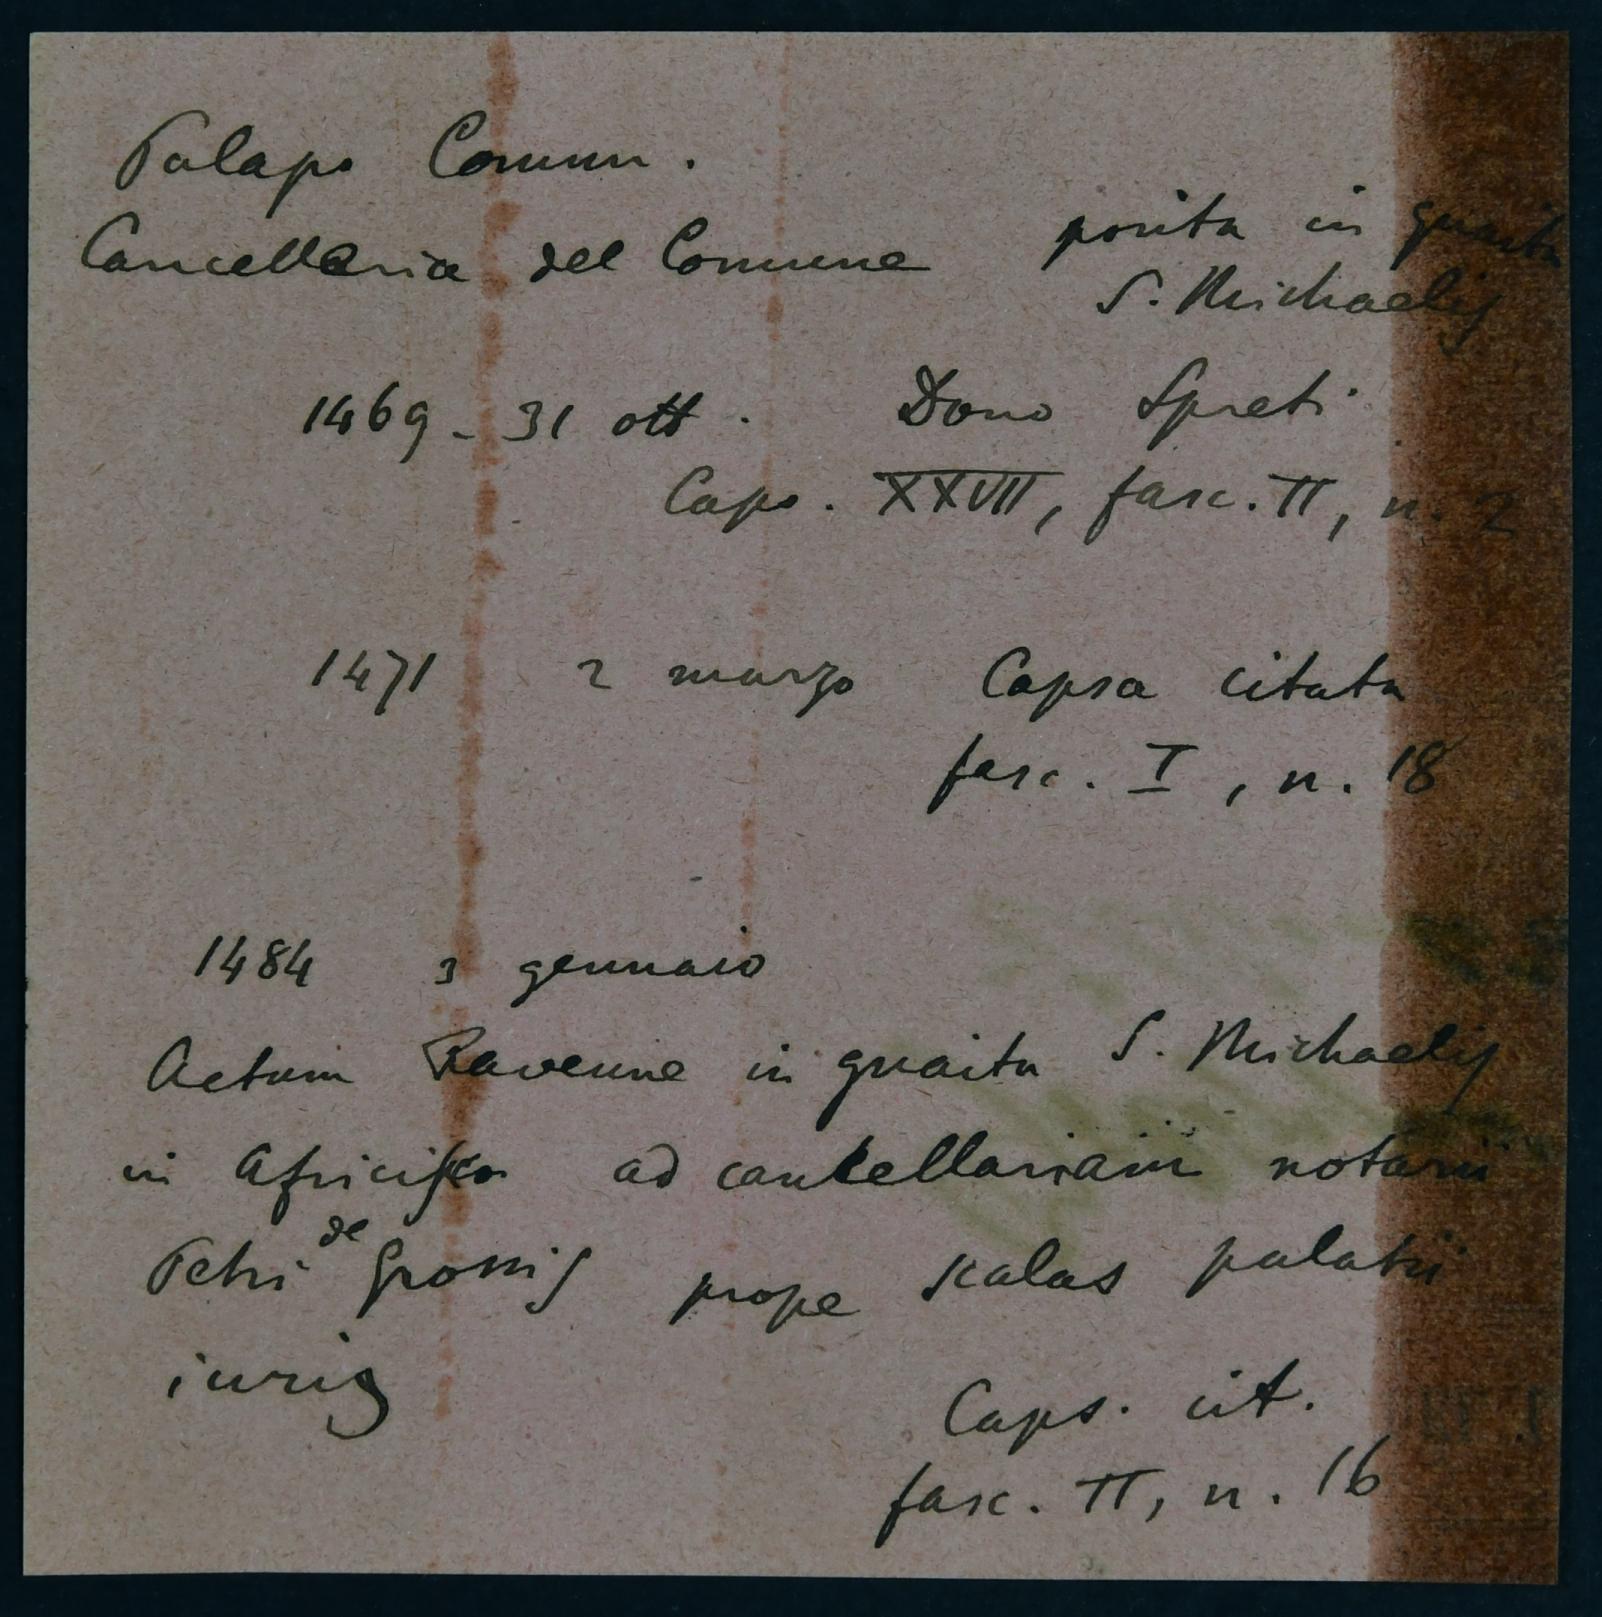 Palazzo Comun.
Cancelleria del Comune posita in guaita
S. Michaelis
1469 - 31 ott. Dono Spreti
Caps. XXVII, fasc. II, n. 2
1471 2 marzo Capsa citata
fasc. I, n. 18
1484 3 gennaio
Actum Ravenne in guaita S. Michaelis
in Africisco ad cancellariam notarii
Petri de Grossis prope scalas palatii
iuris
Caps. cit.
fasc. II, n. 16